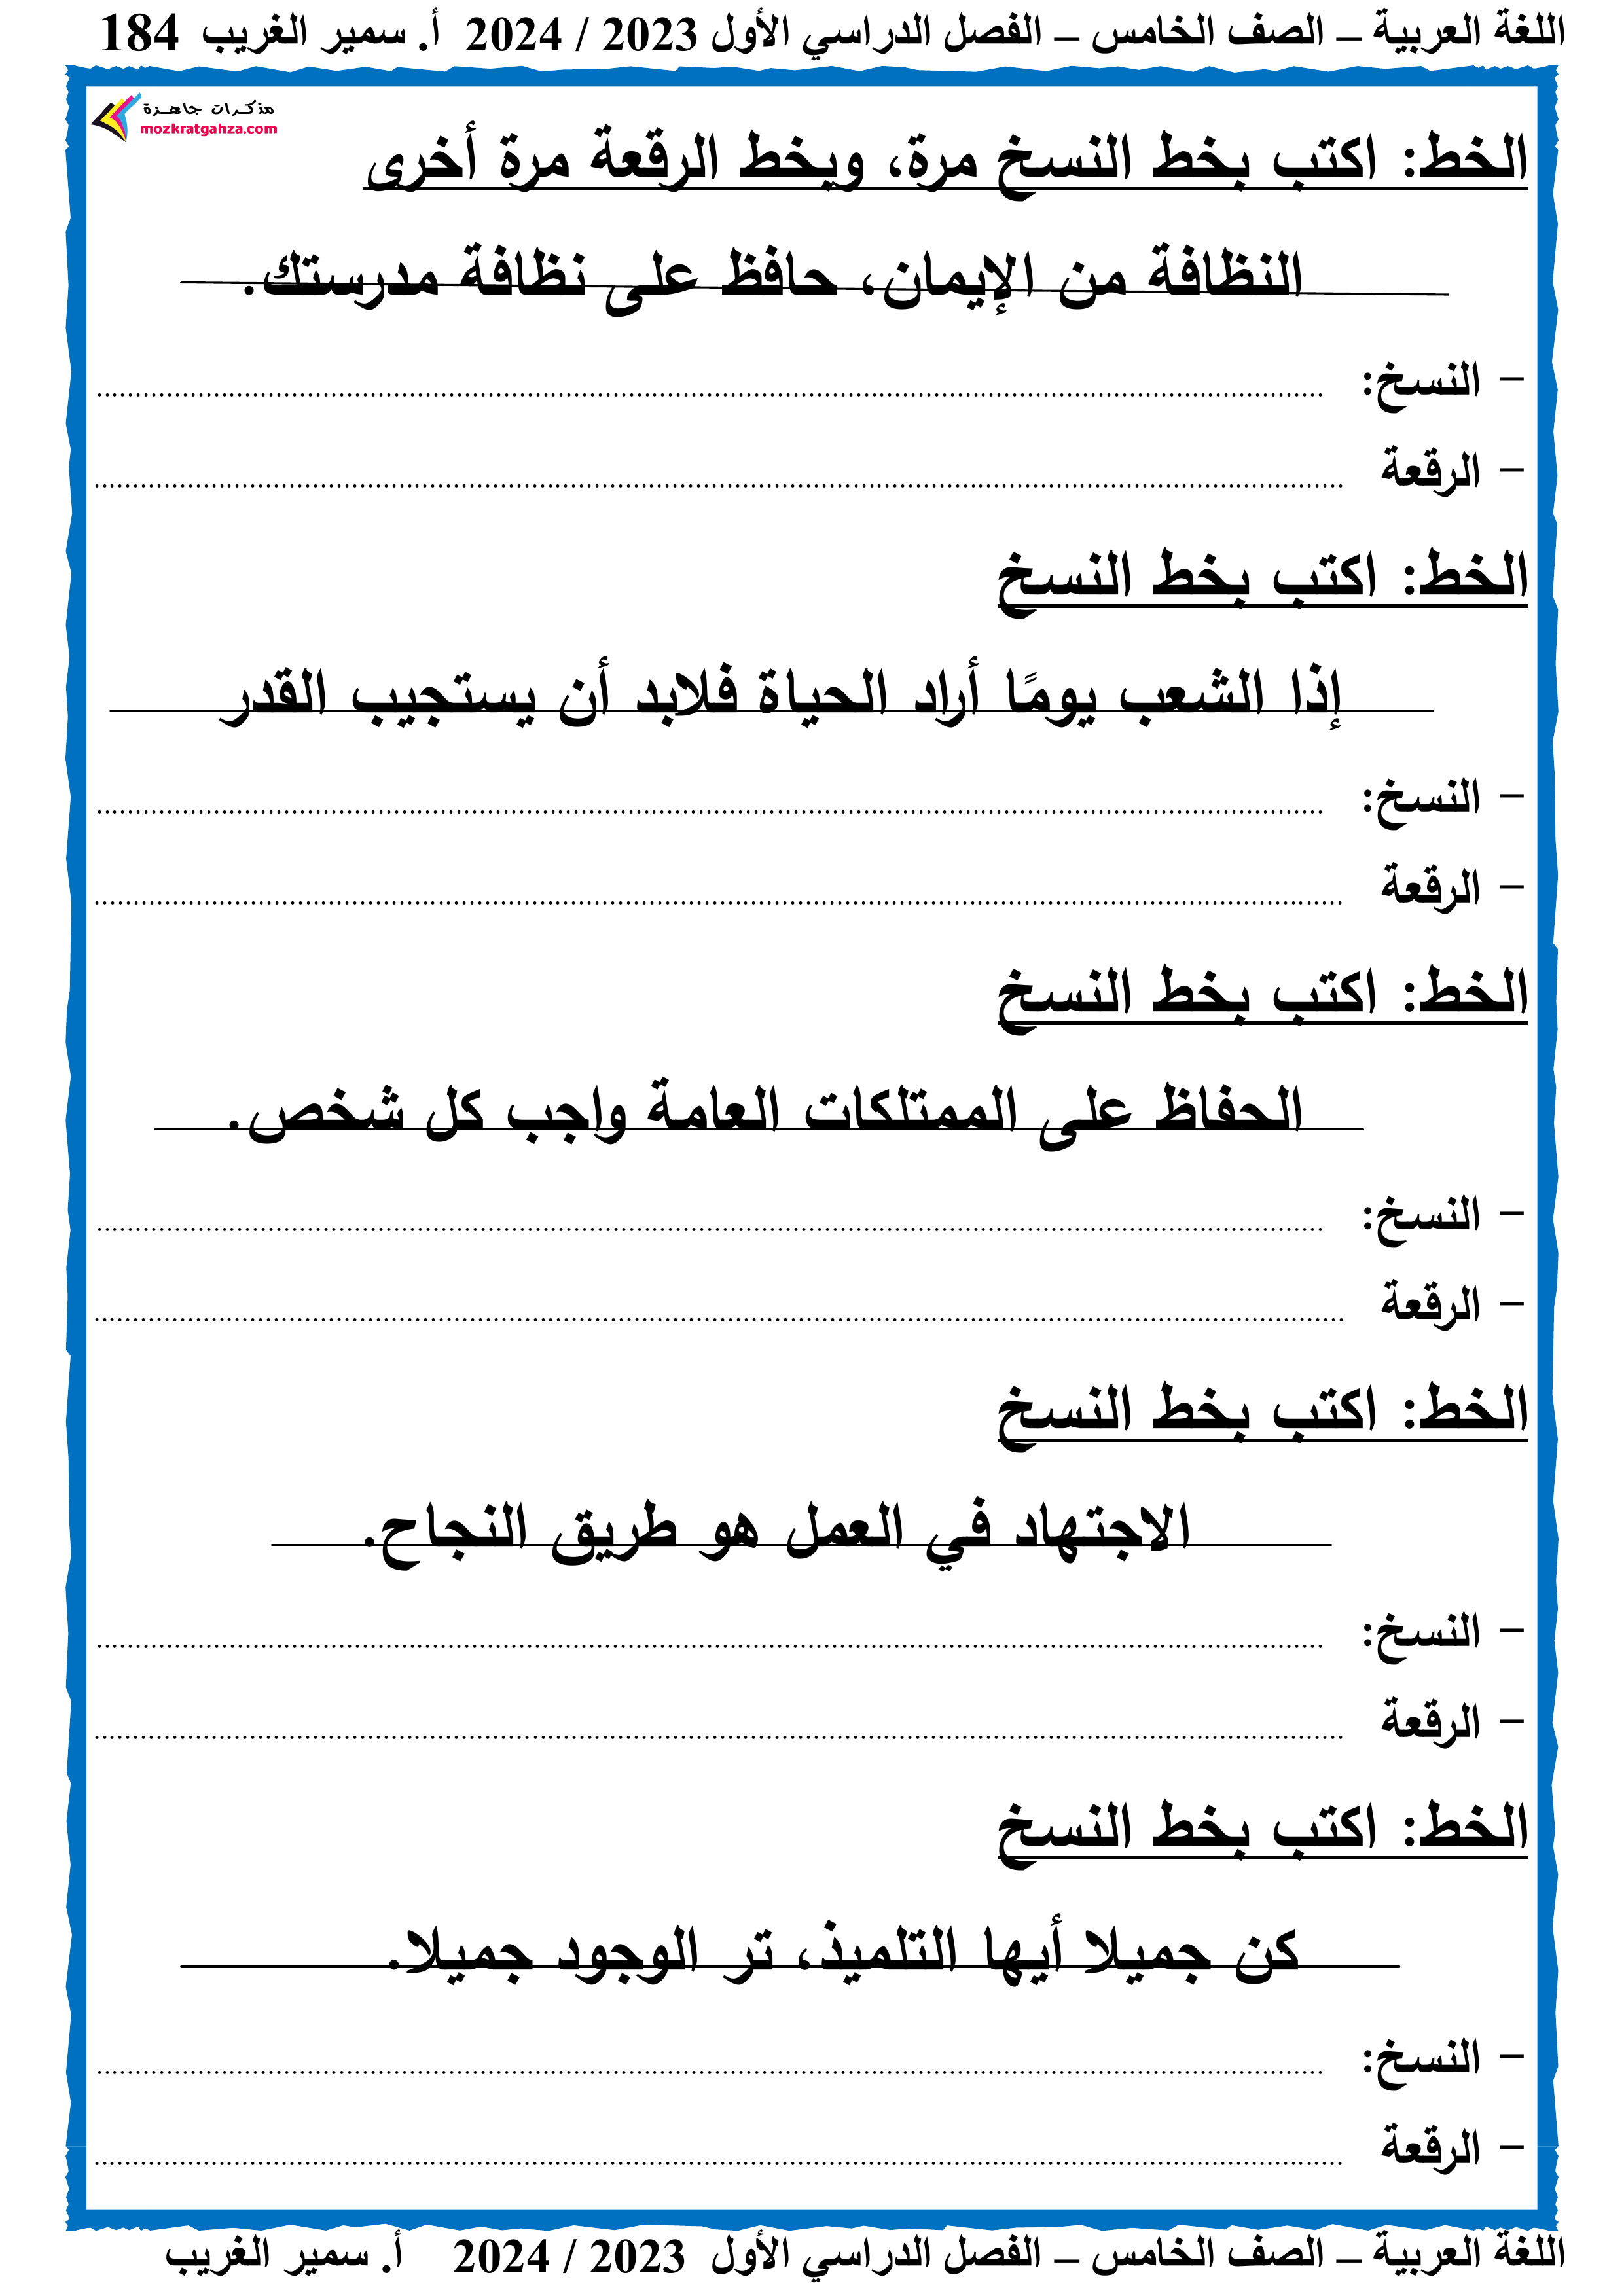 اللغة العربية – الصف الخامس – الفصل الدراسي الأول 2023 / 2024 أ. سمير الغريب 184
مذكرات جاهزة
mozkratgahza.com
الخط: اكتب بخط النسخ مرة، وبخط الرقعة مرة أخرى
النظافة من الإيمان، حافظ على نظافة مدرستك.
– النسخ: ........................................
– الرقعة ........................................
الخط: اكتب بخط النسخ
إذا الشعب يومًا أراد الحياة فلابد أن يستجيب القدر
– النسخ: ........................................
– الرقعة ........................................
الخط: اكتب بخط النسخ
الحفاظ على الممتلكات العامة واجب كل شخص.
– النسخ: ........................................
– الرقعة ........................................
الخط: اكتب بخط النسخ
الاجتهاد في العمل هو طريق النجاح.
– النسخ: ........................................
– الرقعة ........................................
الخط: اكتب بخط النسخ
كن جميلا أيها التلميذ، تر الوجود جميلا.
– النسخ: ........................................
– الرقعة ........................................
اللغة العربية – الصف الخامس – الفصل الدراسي الأول 2023 / 2024 أ. سمير الغريب